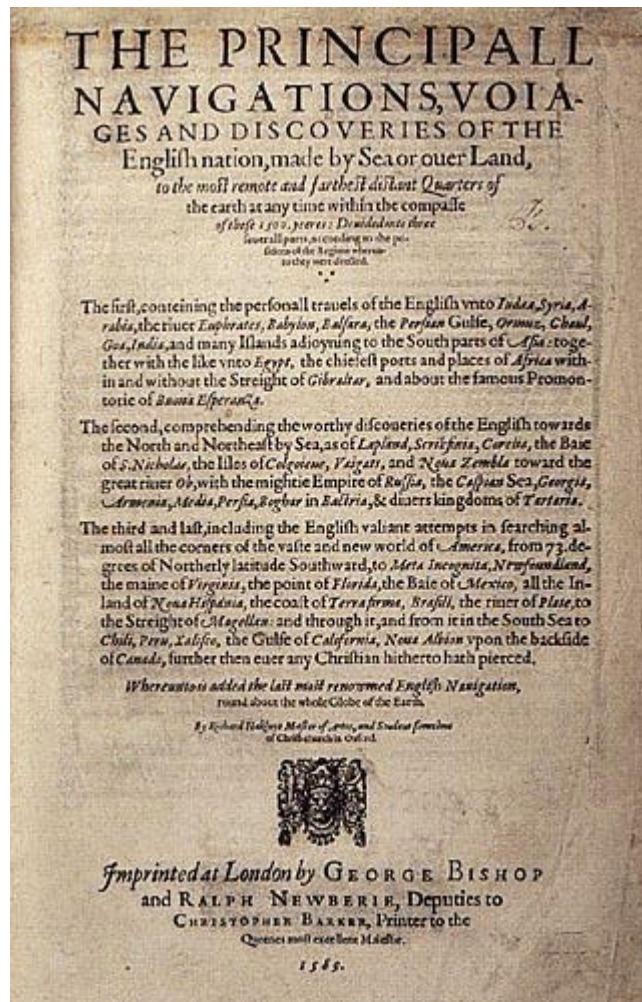 THE PRINCIPALL
NAVIGATIONS, VOIA-
GES AND DISCOVERIES OF THE
Engliſh nation, made by Sea or ouer Land,
to the moſt remote and fartheſt diſtant Quarters of
the earth at any time within the compaſſe
of theſe 1500. yeeres: Deuided into three
ſeuerall parts, according to the po-
ſitions of the Regions wherun-
to they were directed.
The firſt, conteining the perſonall trauels of the Engliſh vnto Iudæa, Syria, A-
rabia, the riuer Euphrates, Babylon, Balſara, the Perſian Gulfe, Ormuz, Chaul,
Goa, India, and many Iſlands adioyning to the South parts of Aſia: toge-
ther with the like vnto Egypt, the chiefeſt ports and places of Africa with-
in and without the Streight of Gibraltar, and about the famous Promon-
torie of Buona Eſperanza.
The ſecond, comprehending the worthy diſcoueries of the Engliſh towards
the North and Northeaſt by Sea, as of Lapland, Scrikfinia, Corelia, the Baie
of S. Nicholas, the Iſles of Colgoieue, Vaigats, and Noua Zembla toward the
great riuer Ob, with the mightie Empire of Ruſſia, the Caſpian Sea, Georgia,
Armenia, Media, Perſia, Boghar in Bactria, & diuers kingdoms of Tartaria.
The third and laſt, including the Engliſh valiant attempts in ſearching al-
moſt all the corners of the vaſte and new world of America, from 73. de-
grees of Northerly latitude Southward, to Meta Incognita, Newfoundland,
the maine of Virginia, the point of Florida, the Baie of Mexico, all the In-
land of Noua Hiſpania, the coaſt of Terra firma, Braſill, the riuer of Plate, to
the Streight of Magellan: and through it, and from it in the South Sea to
Chili, Peru, Xaliſco, the Gulfe of California, Noua Albion vpon the backſide
of Canada, further then euer any Chriſtian hitherto hath pierced.
Whereunto is added the laſt moſt renowmed Engliſh Nauigation,
round about the whole Globe of the Earth.
By Richard Hakluyt Maſter of Artes, and Student ſometime
of Chriſt-church in Oxford.
Imprinted at London by GEORGE BISHOP
and RALPH NEWBERIE, Deputies to
CHRISTOPHER BARKER, Printer to the
Queenes moſt excellent Maieſtie.
1589.